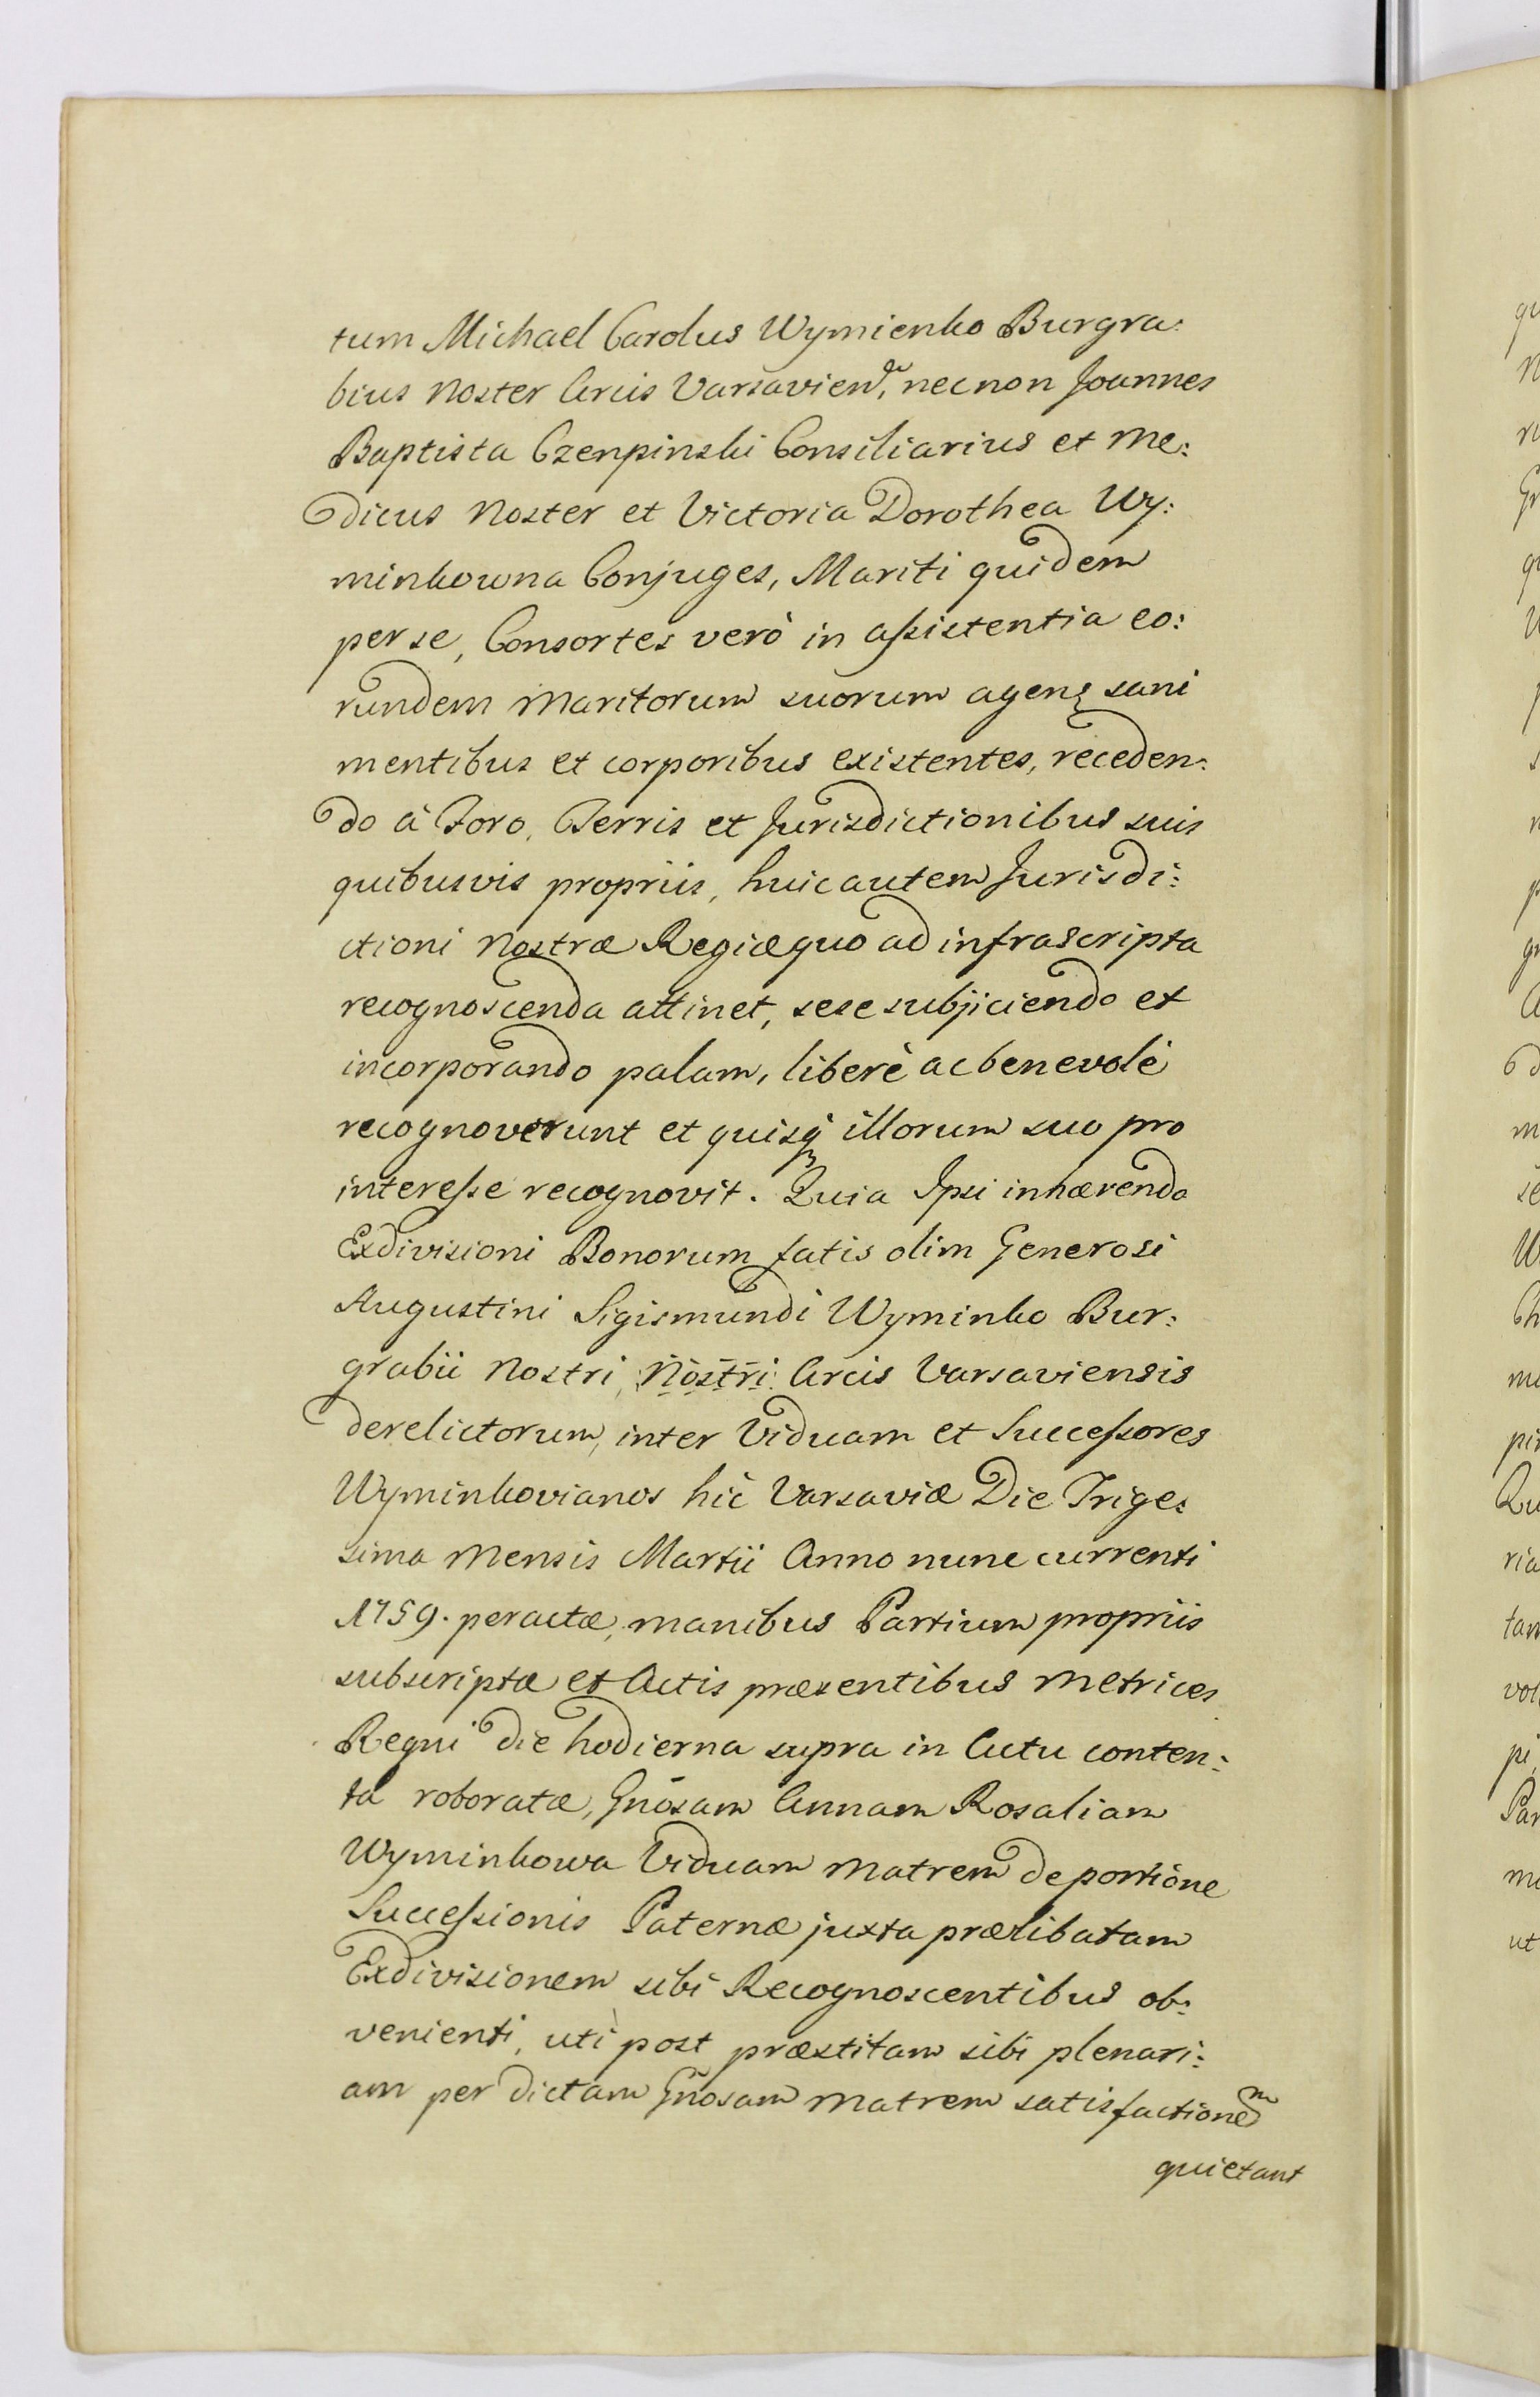 tum Michael Carolus Wymienko Burgra:
bius Noster Arcis Varsavien, necnon Joannes
Baptista Czenpinski Consiliarius et Me:
dicus Noster et Victoria Dorothea Wy:
minkowna Conjuges, Mariti quidem
per se, Consortes verò in aſsistentia eo:
rundem Maritorum suorum agenꝫ sani
mentibus et corporibus existentes, receden:
do à Foro, Terris et Jurisdictionibus suis
quibusvis propriis, huic autem Jurisdi:
ctioni Nostræ Regiæ quo ad infrascripta
recognoscenda attinet, sese subjiciendo et
incorporando palam, liberè ac benevolè
recognoverunt et quisqꝫ illorum suo pro
intereſse recognovit. Quia Ipsi inhærendo
Exdivisioni Bonorum fatis olim Generosi
Augustini Sigismundi Wyminko Bur:
grabii Nostri, Nostri Arcis Varsaviensis
derelictorum, inter Viduam et Succeſsores
Wyminkovianos hic Varsaviæ Die Trige:
sima Mensis Martii Anno nunc currenti
1759. peractæ, manibus Partium propriis
subscriptæ et Actis præsentibus Metrices
Regni die hodierna supra in Actu conten:
ta roboratæ, Gnōsam Annam Rosaliam
Wyminkowa Viduam Matrem de portione
Succeſsionis Paternæ juxta prælibatam
Exdivisionem sibi Recognoscentibus ob:
venienti, uti post præstitam sibi plenari:
am per dictam Gnōsam Matrem satisfactionem
quietant